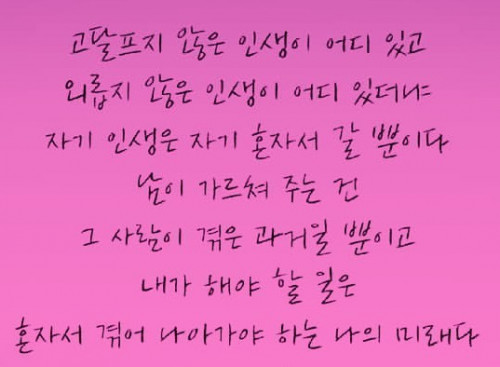 고달프지 않은 인생이 어디 있고
외롭지 않은 인생이 어디 있더냐
자기 인생은 자기 혼자서 갈 뿐이다
남이 가르쳐 주는 건
그 사람이 겪은 과거일 뿐이고
내가 해야 할 일은
혼자서 겪어 나아가야 하는 나의 미래다